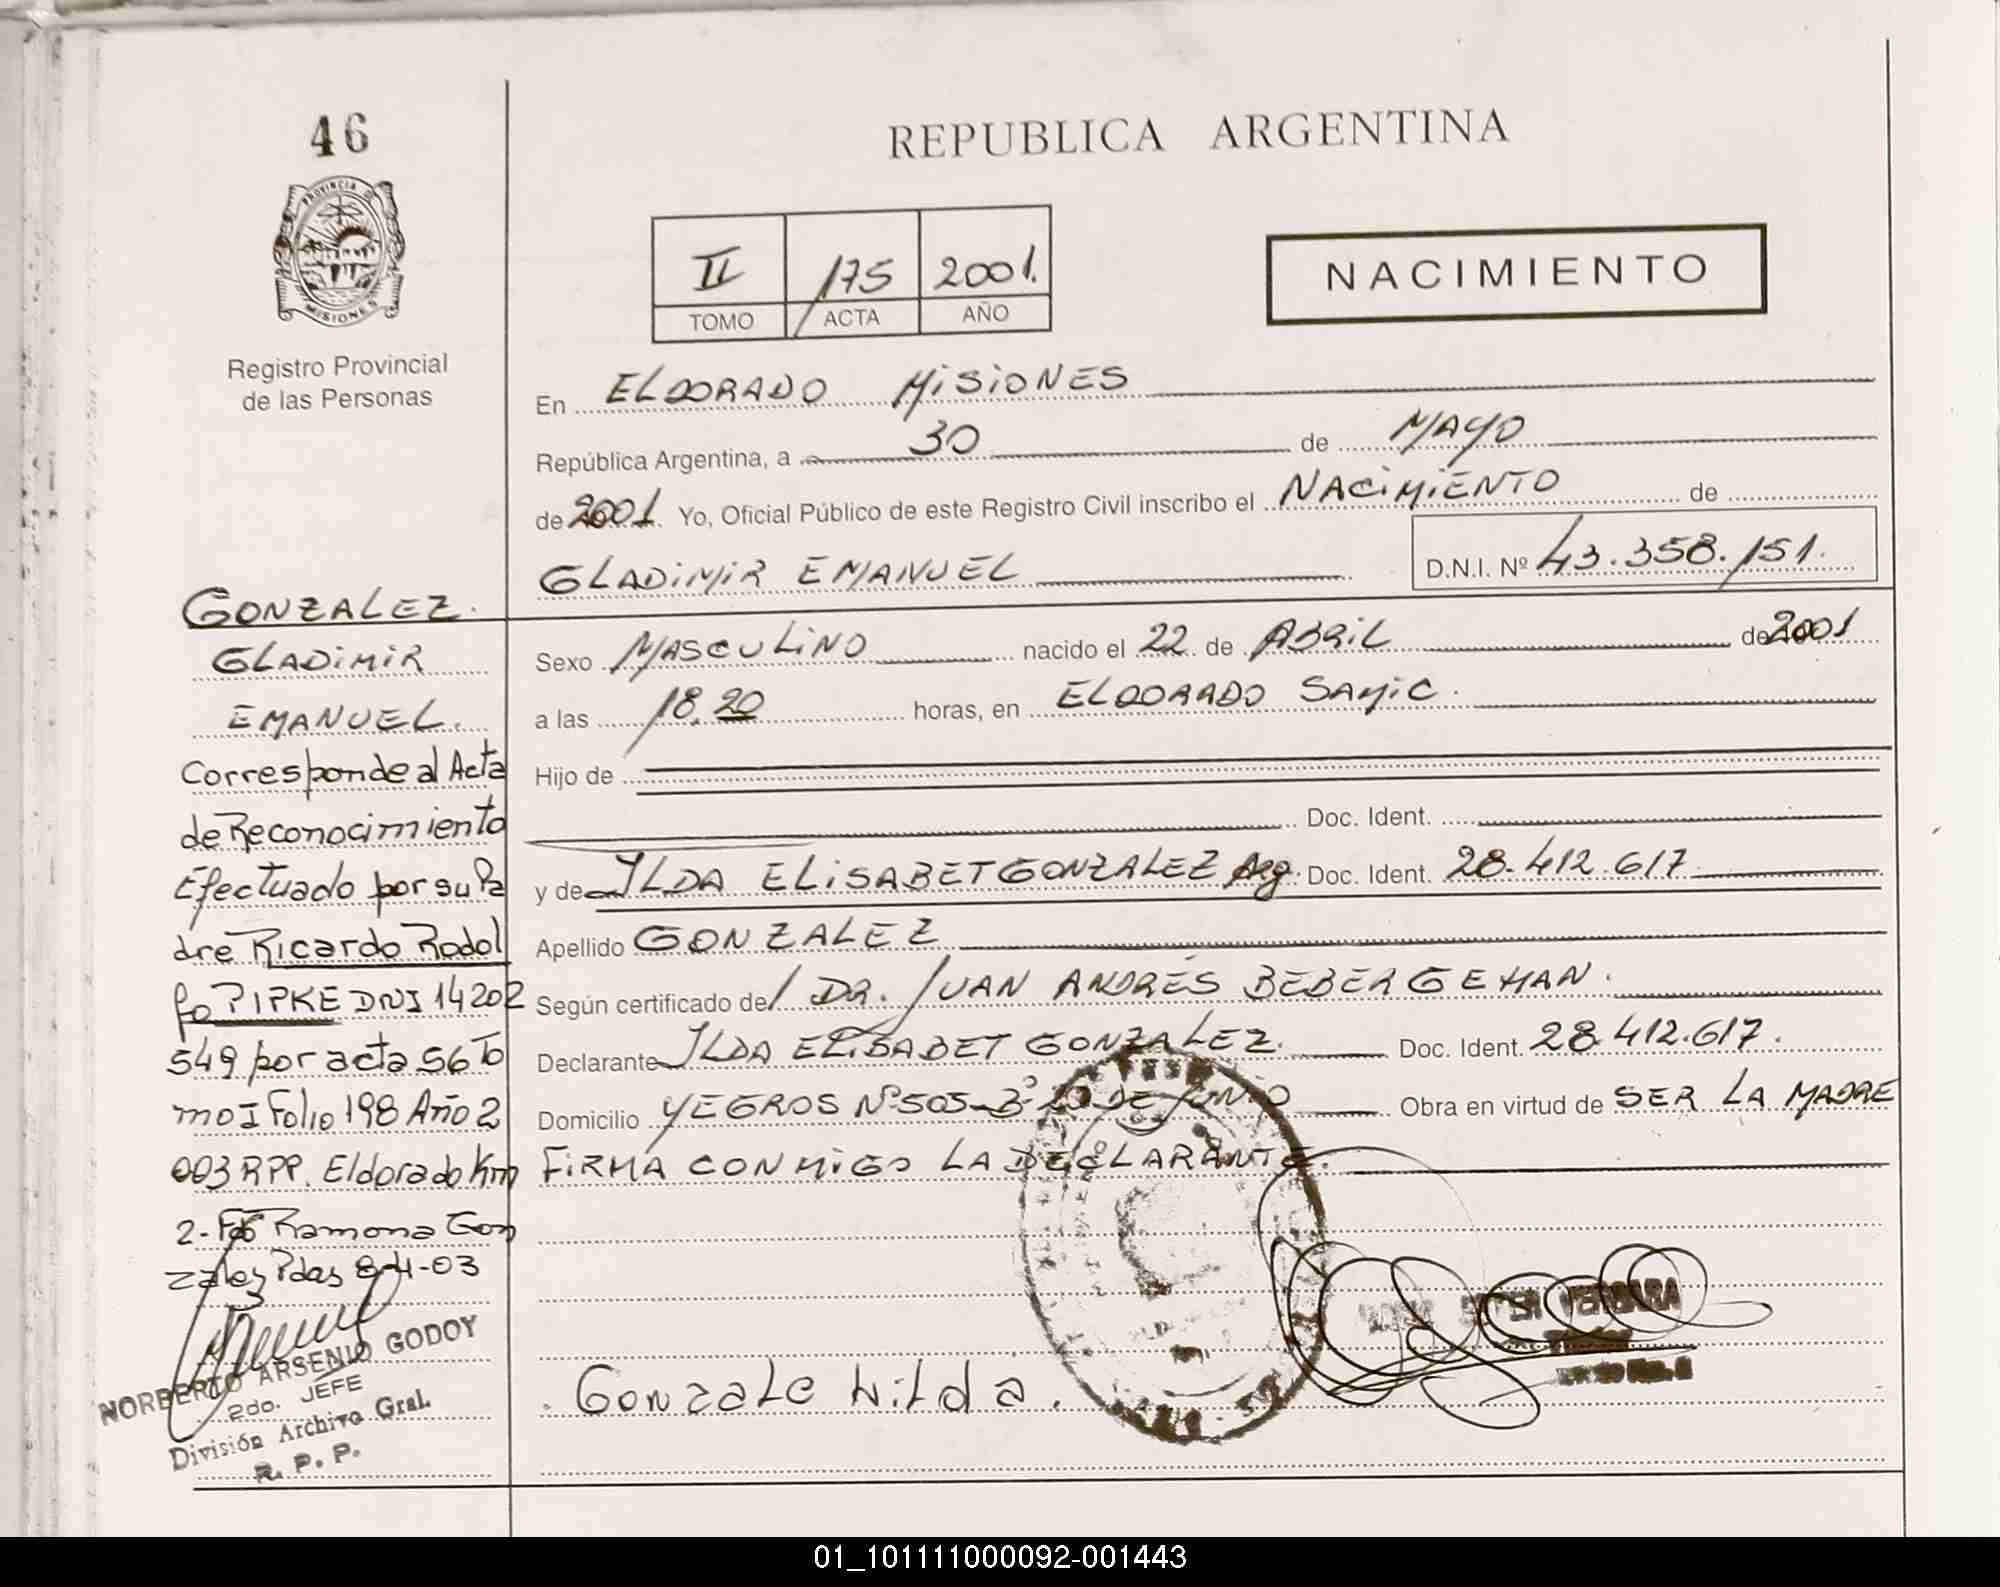 46
REPUBLICA ARGENTINA
PROVINCIA D
MISIONES
II 175 2001.
TOMO ACTA AÑO
NACIMIENTO
Registro Provincial
de las Personas
En ELDORADO MISIONES
República Argentina, a 30 de MAYO
de 2001. Yo, Oficial Público de este Registro Civil inscribo el NACIMIENTO de
GLADIMIR EMANUEL D.N.I. Nº 43.358.151.
Sexo MASCULINO nacido el 22 de ABRIL de 2001
a las 18.20 horas, en ELDORADO SAMIC.
Hijo de
Doc. Ident.
y de YLDA ELISABET GONZALEZ Arg. Doc. Ident. 28.412.617.
Apellido GONZALEZ
Según certificado de/ DR. JUAN ANDRÉS BEBER GEHAN.
Declarante YLDA ELISABET GONZALEZ. Doc. Ident. 28.412.617.
Domicilio YEGROS Nº 505-Bº 20 DE JUNIO Obra en virtud de SER LA MADRE
FIRMA CONMIGO LA DECLARANTE.
Gonzale hilda.
VERGARA
GONZALEZ.
GLADIMIR
EMANUEL.
Corresponde al Acta
de Reconocimiento
Efectuado por su Pa
dre Ricardo Rodol
fo PIPKE DNI 14202
549 por acta 56 To
mo I Folio 198 Año 2
003 RPP. Eldorado Km
2- Fdo Ramona Gon
zalez Pdas 8-4-03
NORBERTO ARSENIO GODOY
2do. JEFE
División Archivo Gral.
R. P. P.
01_101111000092-001443